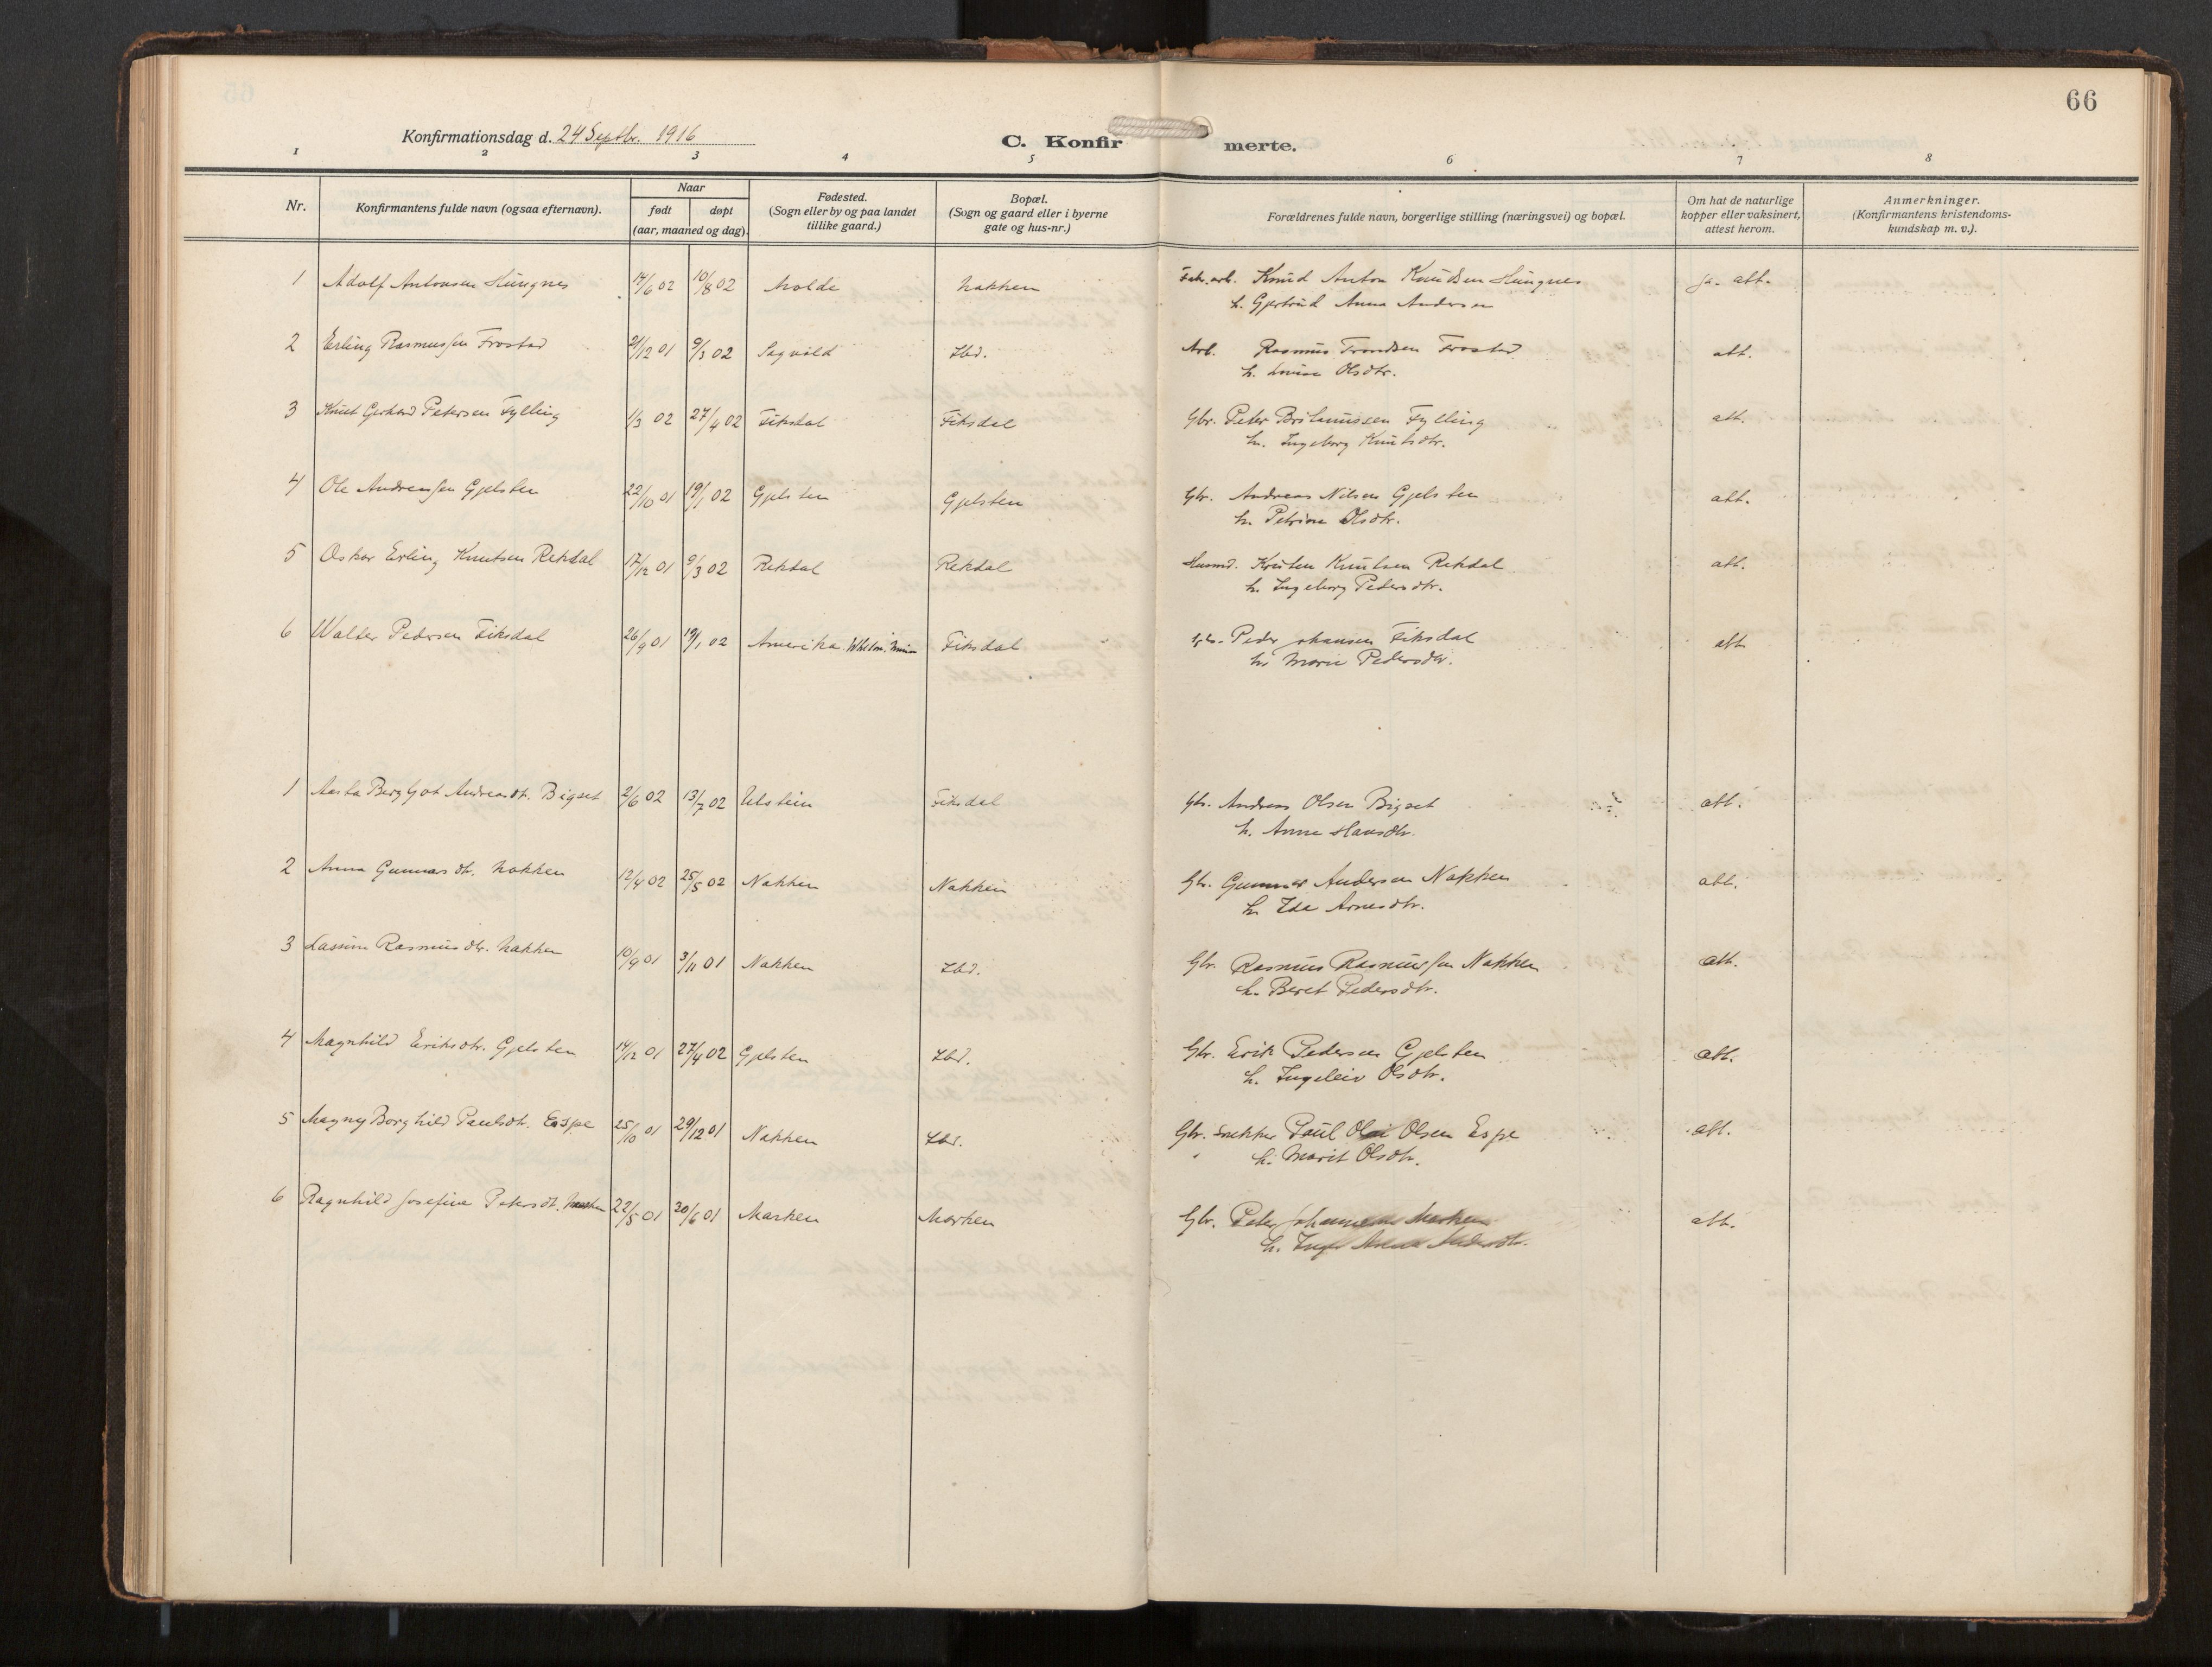 66
Konfirmationsdag d. 24 Septbr. 1916
C. Konfirmerte.
1 2 3 4 5 6 7 8
Nr.
Konfirmantens fulde navn (ogsaa efternavn).
Naar
født døpt
(aar, maaned og dag).
Fødested.
(Sogn eller by og paa landet
tillike gaard.)
Bopæl.
(Sogn og gaard eller i byerne
gate og hus-nr.)
Forældrenes fulde navn, borgerlige stilling (næringsvei) og bopæl.
Om hat de naturlige
kopper eller vaksinert,
attest herom.
Anmerkninger.
(Konfirmantens kristendoms-
kundskap m. v.).
1 Adolf Antonsen Hungnes 14/6 02 10/8 02 Molde Nakken Fabr. arb. Knud Anton Knudsen Hungnes ja. att.
h. Gjertrud Anna Andersen
2 Erling Rasmussen Frostad 21/12 01 9/3 02 Sagvild Ibd. Arb. Rasmus Trondsen Frostad att.
h. Lovise Olsdtr.
3 Knut Gerhard Petersen Fylling 1/3 02 27/4 02 Fiksdal Fiksdal Gbr. Peter Fylling att.
h. Ingeborg Knutsdtr.
4 Ole Andreassen Gjelsten 22/10 01 19/1 02 Gjelsten Gjelsten Gbr. Andreas Nilsen Gjelsten att.
h. Petrine Olsdtr.
5 Oskar Erling Knutsen Rekdal 17/12 01 9/3 02 Rekdal Rekdal Husmd. Kristen Knutsen Rekdal att.
h. Ingeborg Pedersdtr.
6 Walter Pedersen Fiksdal 26/9 01 19/1 02 Amerika. Fiksdal Gbr. Peder Johansen Fiksdal att.
h. Marie Pedersdtr.
1 Aasta Bergljot Andreasdtr. Bigset 2/6 02 13/7 02 Ulstein Fiksdal Gbr. Andreas Olsen Bigset att.
h. Anne Hansdtr.
2 Anna Gunnarsdtr. Nakken 12/4 02 25/5 02 Nakken Nakken Gbr. Gunnar Andersen Nakken att.
h. Ida Arnesdtr.
3 Lassine Rasmusdtr. Nakken 10/9 01 3/11 01 Nakken Ibd. Gbr. Rasmus Rasmussen Nakken att.
h. Beret Pedersdtr.
4 Magnhild Eriksdtr. Gjelsten 14/12 01 27/4 02 Gjelsten Ibd. Gbr. Erik Pedersen Gjelsten att.
h. Ingeleiv Olsdtr.
5 Magny Borghild Paulsdtr. Espe 25/10 01 29/12 01 Nakken Ibd. Gbr. Snekker Paul Olai Olsen Espe att.
h. Marit Olsdtr.
6 Ragnhild Josefine Petersdt. 22/5 01 20/6 01 Marken Marken Gbr. Peter Johannesen Marken att.
h. Andersdtr.